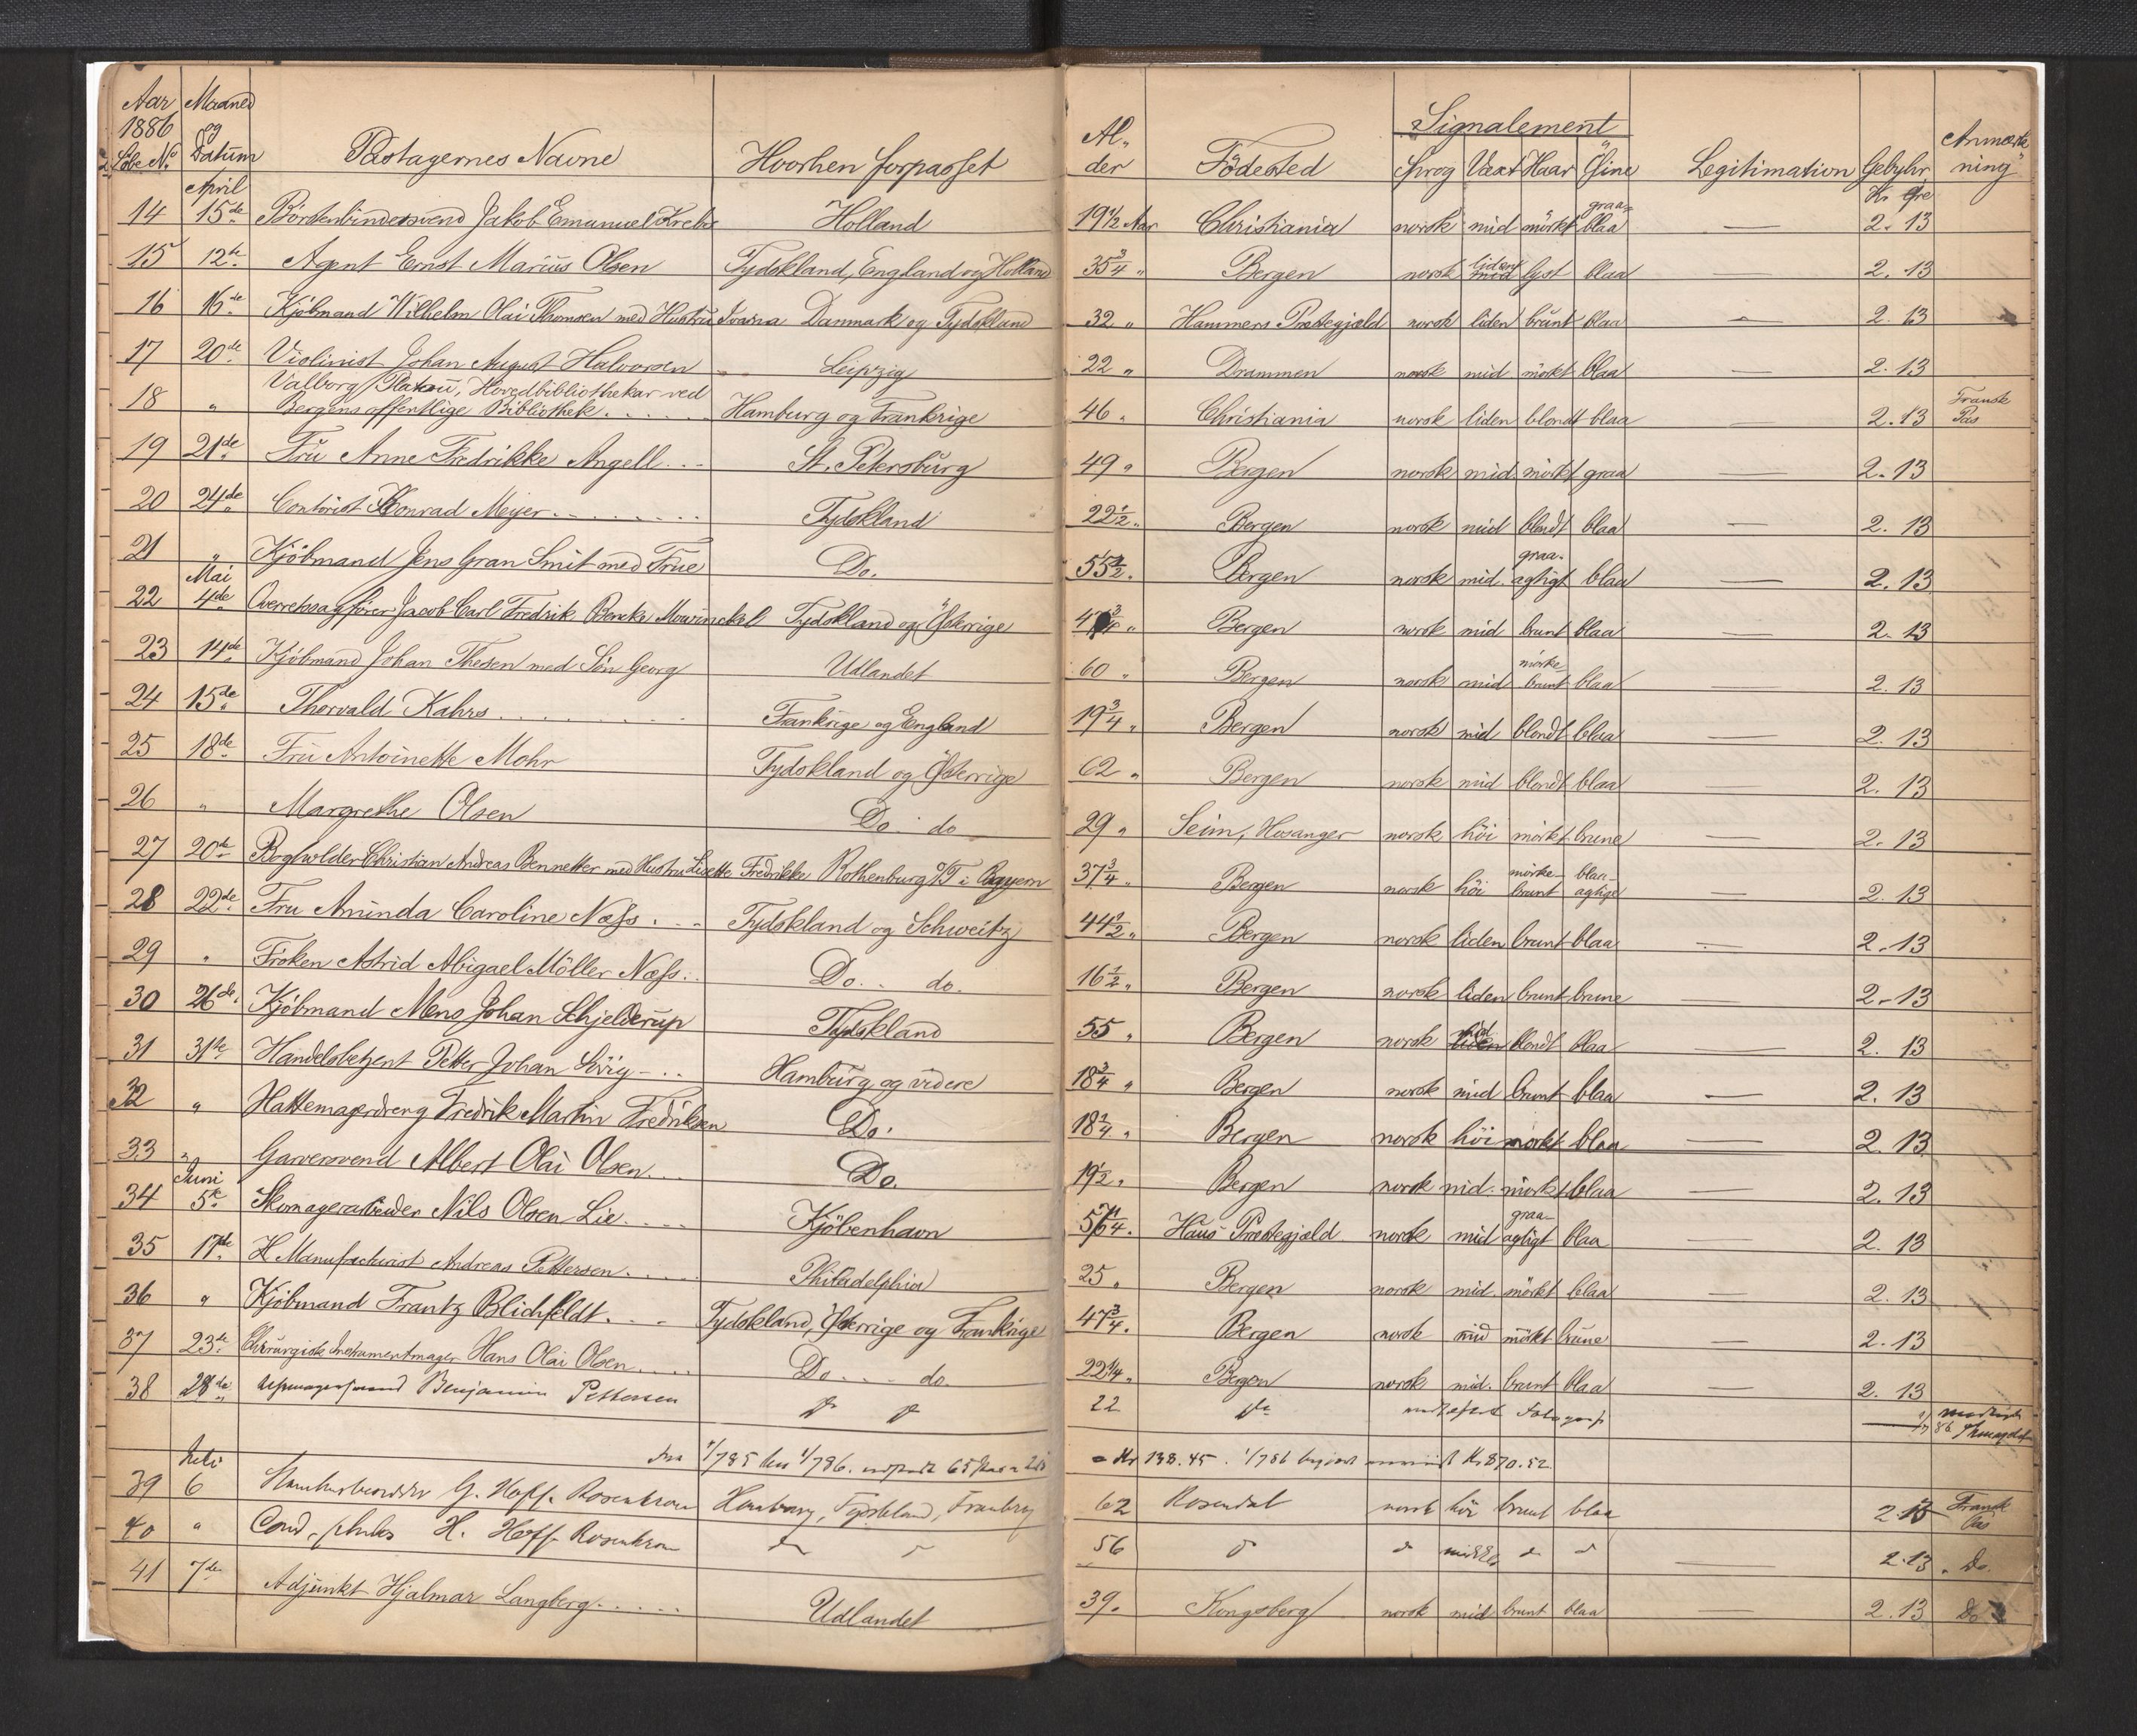 Aar 1886 Löbe No. Maaned og Datum Passagernes Navne Hvorhen forpasset Al-der Födested Signalement Sprog Væxt Haar Öine Legitimation Gebyhr Anmærkning
April Kr. Öre
14 15de Börstenbindersvend Jakob Emanuel Krebs Holland 19 1/2 Aar Christiania norsk mid mörkt graa-blaa — 2. 13
15 12te Agent Ernst Marius Olsen Tydskland, England og Holland 35 3/4 " Bergen norsk liden lyst blaa — 2. 13
16 16de Kjöbmand Wilhelm Olai Thomsen med Hustru Ivarna Danmark og Tydskland 32 " Hammers Prestegjæld norsk liden brunt blaa — 2. 13
17 20de Violinist Johan August Halvorsen Leipzig 22 " Drammen norsk mid mörkt blaa — 2. 13
Valborg Platou, Hovedbibliothekar ved
18 " Bergens offentlige Bibliothek Hamburg og Frankrige 46 " Christiania norsk liden blondt blaa — 2. 13 Fransk Pas
19 21de Fru Anne Fredrikke Angell St. Petersburg 49 " Bergen norsk mid mörkt graa — 2. 13
20 24de Contorist Konrad Meyer Tydskland 22 1/2 " Bergen norsk mid blondt blaa — 2. 13
21 " Kjöbmand Jens Gran Smit med Frue Do. 55 1/2 " Bergen norsk mid. graa-agtigt blaa — 2. 13
Mai
22 4de Overretssagförer Jacob Carl Fredrik Bencke Mowinckel Tydskland og Österrige Bergen norsk mid brunt blaa — 2. 13
23 14de Kjöbmand Johan Thesen med Sön Georg Udlandet 60 " Bergen norsk mid mörke-brunt blaa — 2. 13
24 15de Thorvald Kahrs Frankrige og England 19 3/4 " Bergen norsk mid blondt blaa — 2. 13
25 18de Fru Antoinette Mohr Tydskland og Österrige 62 " Bergen norsk mid blondt blaa — 2. 13
26 " Margrethe Olsen Do. do 29 " Seim, Hosanger norsk höi mörkt brune — 2. 13
27 20de Bogholder Christian Andreas Bennetter med Hustru Lisette Fredrikke Rothenburg o/T i Bayern 37 3/4 " Bergen norsk höi mörke-brunt blaa-agtige — 2. 13
28 22de Fru Aminda Caroline Næss Tydskland og Schweitz 44 1/2 " Bergen norsk liden brunt blaa — 2. 13
29 " Fröken Astrid Abigael Möller Næss Do. do. 16 1/2 " Bergen norsk liden brunt brune — 2. 13
30 26de Kjöbmand Mens Johan Schjelderup Tydskland 55 " Bergen norsk mid blondt blaa — 2. 13
31 31te Handelsbetjent Petter Johan Hamburg og videre 18 3/4 " Bergen norsk mid brunt blaa — 2. 13
32 " Hattemagerdreng Fredrik Martin Fredriksen Do. 18 3/4 " Bergen norsk höi mörkt blaa — 2. 13
33 " Garversvend Albert Olai Olsen Do. 19 1/2 " Bergen norsk mid. mörkt blaa — 2. 13
Juni
34 5te Skomagerarbeider Nils Olsen Lie Kjöbenhavn Haus Prestegjæld norsk mid graa-agtigt blaa — 2. 13
35 17de Manufacturist Andreas Pettersen Philadelphia 25 " Bergen norsk mid. mörkt blaa — 2. 13
36 " Kjöbmand Frantz Blichfeldt Tydskland, Österrige og Frankrige 47 3/4 " Bergen norsk mid mörkt brune — 2. 13
37 23de Chirurgisk Instrumentmager Hans Olai Olsen Do. do. 22 1/4 " Bergen norsk mid. brunt blaa — 2. 13
38 28de Benjamin Pettersen 22
fra 1/7 85 til 1/7 86. 65 Pas Kr 138.45. 1/7 86 Kr 870.52
Juli
39 6 G. Hoff-Rosenkrone Hamburg, Tydskland, Frankrig 62 Rosendal norsk höi brunt blaa 2.13 Fransk Pas
40 " Cand. philos H. Hoff-Rosenkrone 56 — 2.13 Do.
41 7de Adjunkt Hjalmar Langberg Udlandet 39 " Kongsberg norsk mid brunt blaa — 2. 13 Do